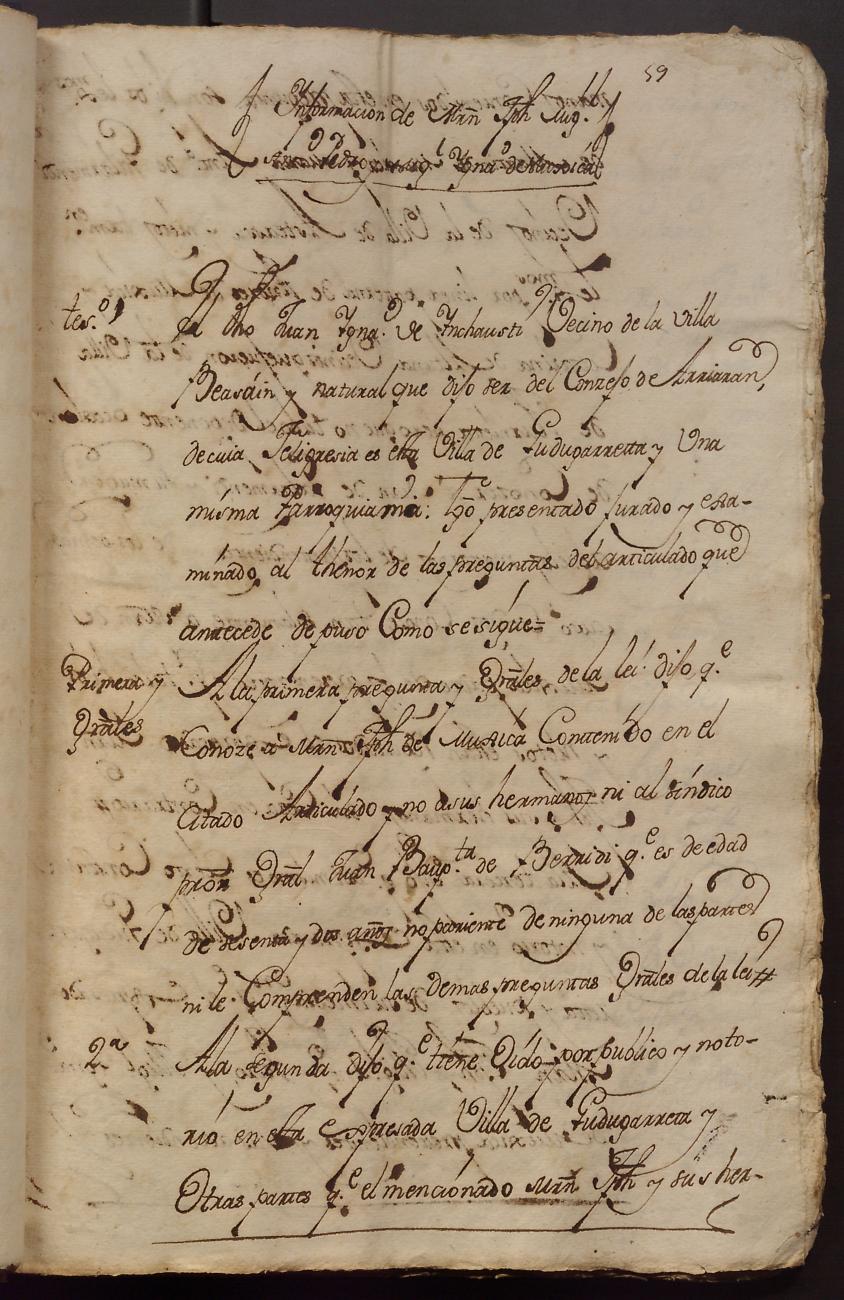 59
Ynformacion de Mrn Jph Aug.
tes.º 1
El dho Juan Ygna.º de Ynchausti Vecino de la Villa
Beasáin y natural que dijo ser del Conzejo de Arriaran,
de cuia Feligresia es esta Villa de Gudugarreta y Una
misma Parroquia: tgo presentado jurado y esa-
minado al thenor de las preguntas del articulado que
antecede depuso Como se sigue=
Primera y
Grales
A la primera pregunta y Grales de la lei dijo q.e
Conoze a Mrn Jph de Muxica Contenido en el
Citado Articulado y no a sus hermanos ni al síndico
prōr Gral Juan Baup.ta de Berridi q.e es de edad
de sesenta y dos años no pariente de ninguna de las partes
ni le Comprenden las demas preguntas Grales de la lei
2.a
A la segunda dijo q.e tiene Oido por publico y noto-
rio en esta espresada Villa de Gudugarreta y
Otras partes q.e el mencionado Mrn Jph y sus her-